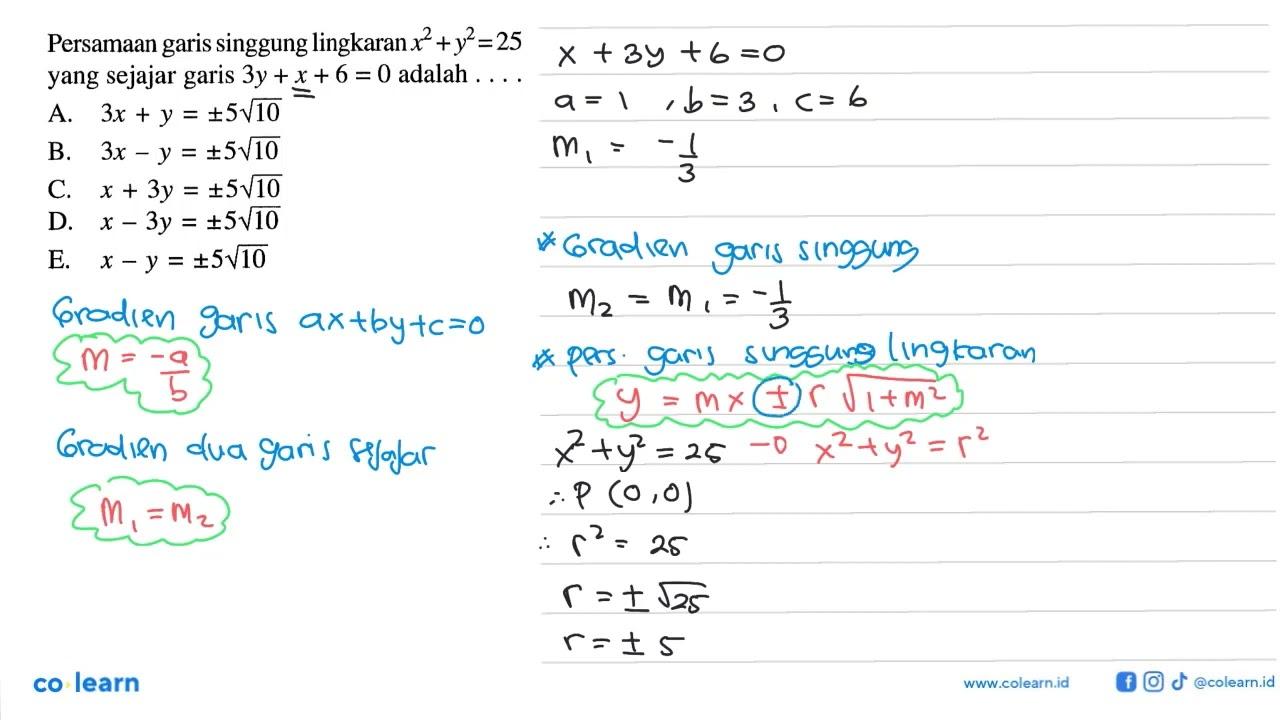 Persamaan garis singgung lingkaran x²+y²=25
yang sejajar garis 3y + x + 6 = 0 adalah . . . .
A. 3x + y = ±5√10
B. 3x – y = ±5√10
C. x + 3y = ±5√10
D. x – 3y = ±5√10
E. x – y = ±5√10
Gradien garis ax+by+c=0
m = -a/b
Gradien dua garis sejajar
m₁ = m₂
x + 3y + 6 = 0
a = 1 , b = 3 , c = 6
m₁ = -1/3
* Gradien garis singgung
m₂ = m₁ = -1/3
* pers. garis singgung lingkaran
y = mx ± r √1+m²
x² + y² = 25 → x² + y² = r²
∴ P (0,0)
∴ r² = 25
r = ± √25
r = ± 5
co learn
www.colearn.id
@colearn.id